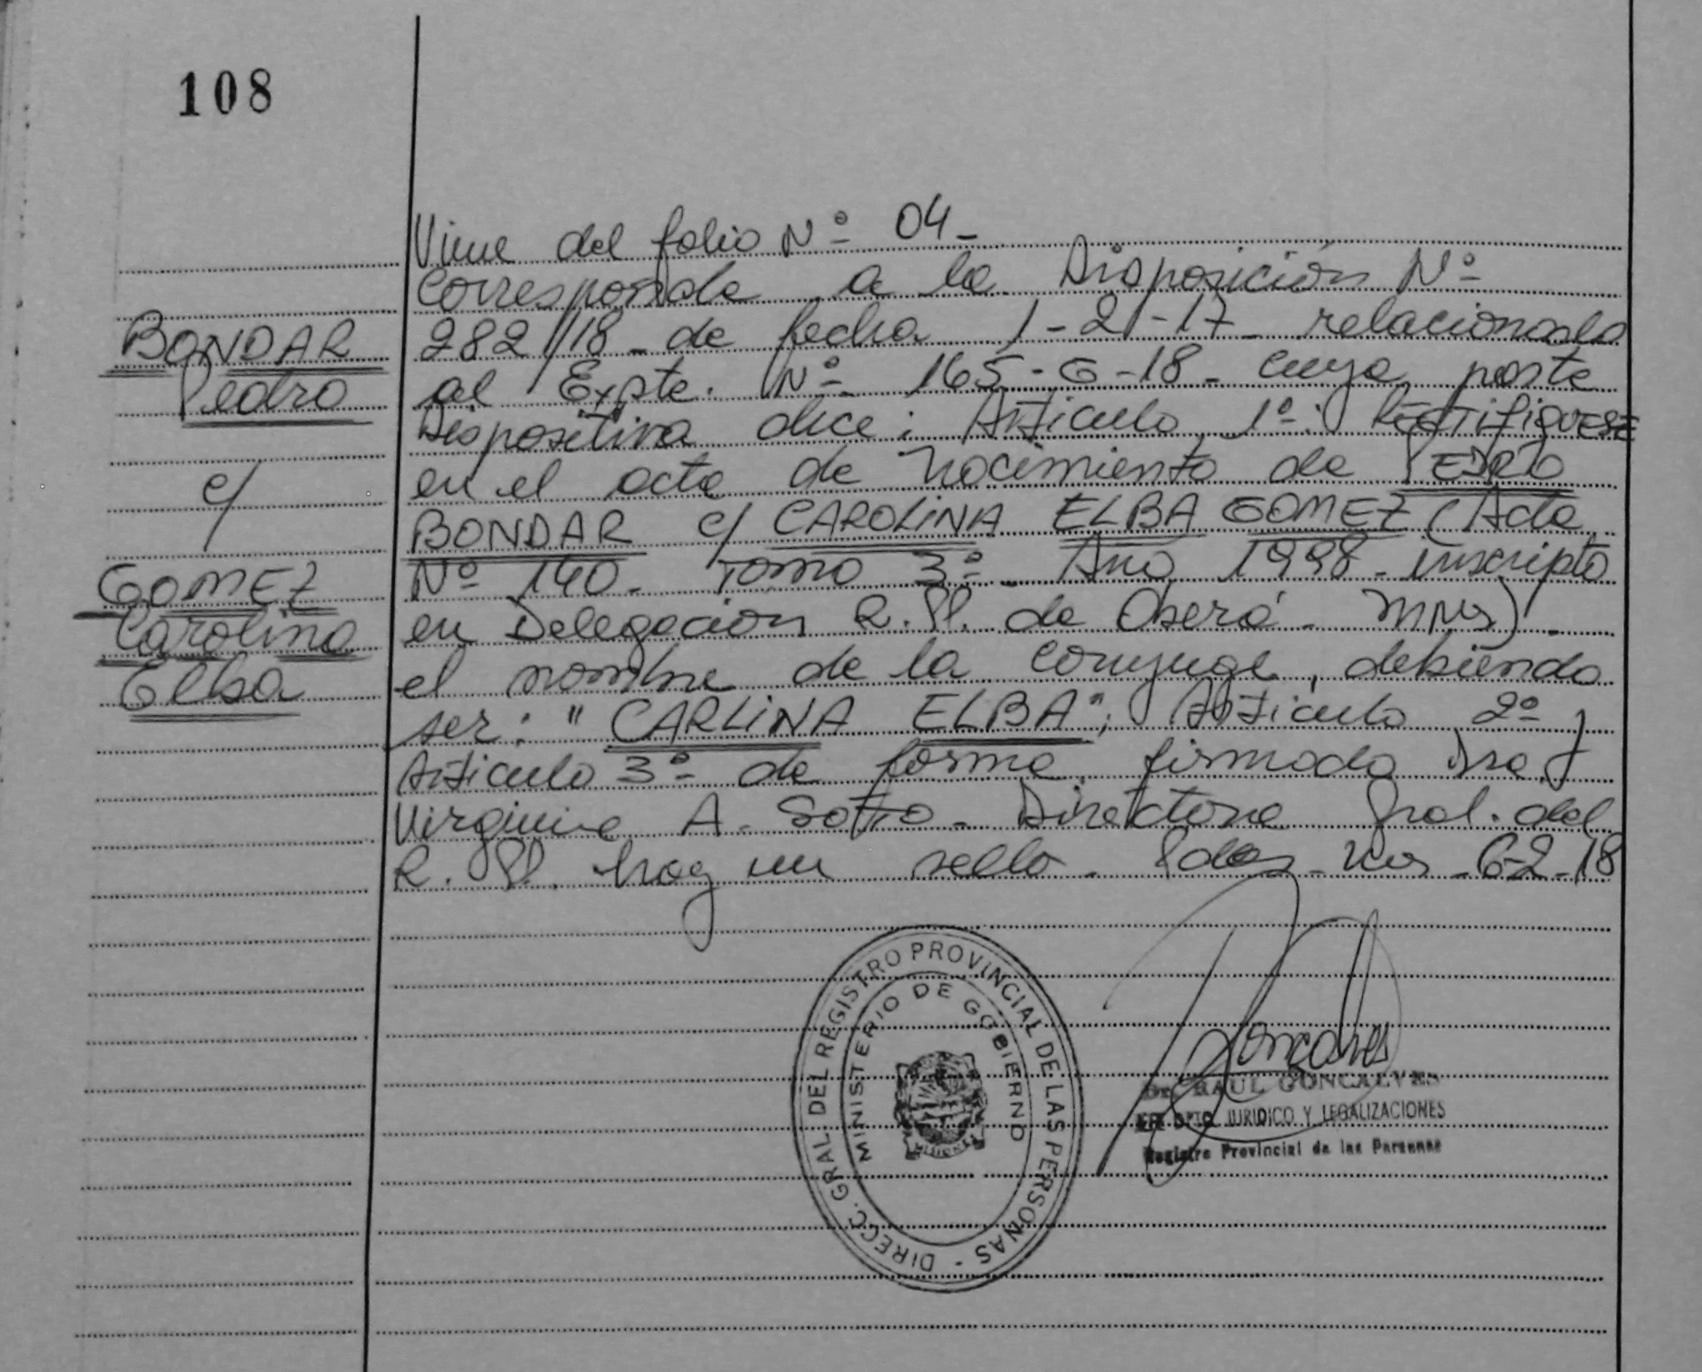 108
Viene del folio Nº 04-
Corresponde a la Disposición Nº
BONDAR
Pedro
c/
GOMEZ
Carolina
Elba
282/18 - de fecha 1-2-17 relacionado
al Expte. Nº 165-G-18- cuya parte
Dispositiva dice: Artículo 1º: RECTIFIQUESE
en el acta de nacimiento de PEDRO
BONDAR c/ CAROLINA ELBA GOMEZ (Acta
Nº 140- Tomo 3º- Año 1998- inscripto
en Delegación R.P. de Oberá- MNES)-
el nombre de la conyuge, debiendo
ser: " CARLINA ELBA"; Artículo 2º y
Artículo 3º- de forma firmado Dra.
Virginia A. Sotto- Directora Gral. del
R. P. hay un sello. Pdas- Mes- 6-2-18
DIRECC. GRAL. DEL REGISTRO PROVINCIAL DE LAS PERSONAS -
MINISTERIO DE GOBIERNO
MISIONES
Goncalves
Dr. RAUL GONCALVES
DPTO. JURIDICO Y LEGALIZACIONES
Registro Provincial de las Personas